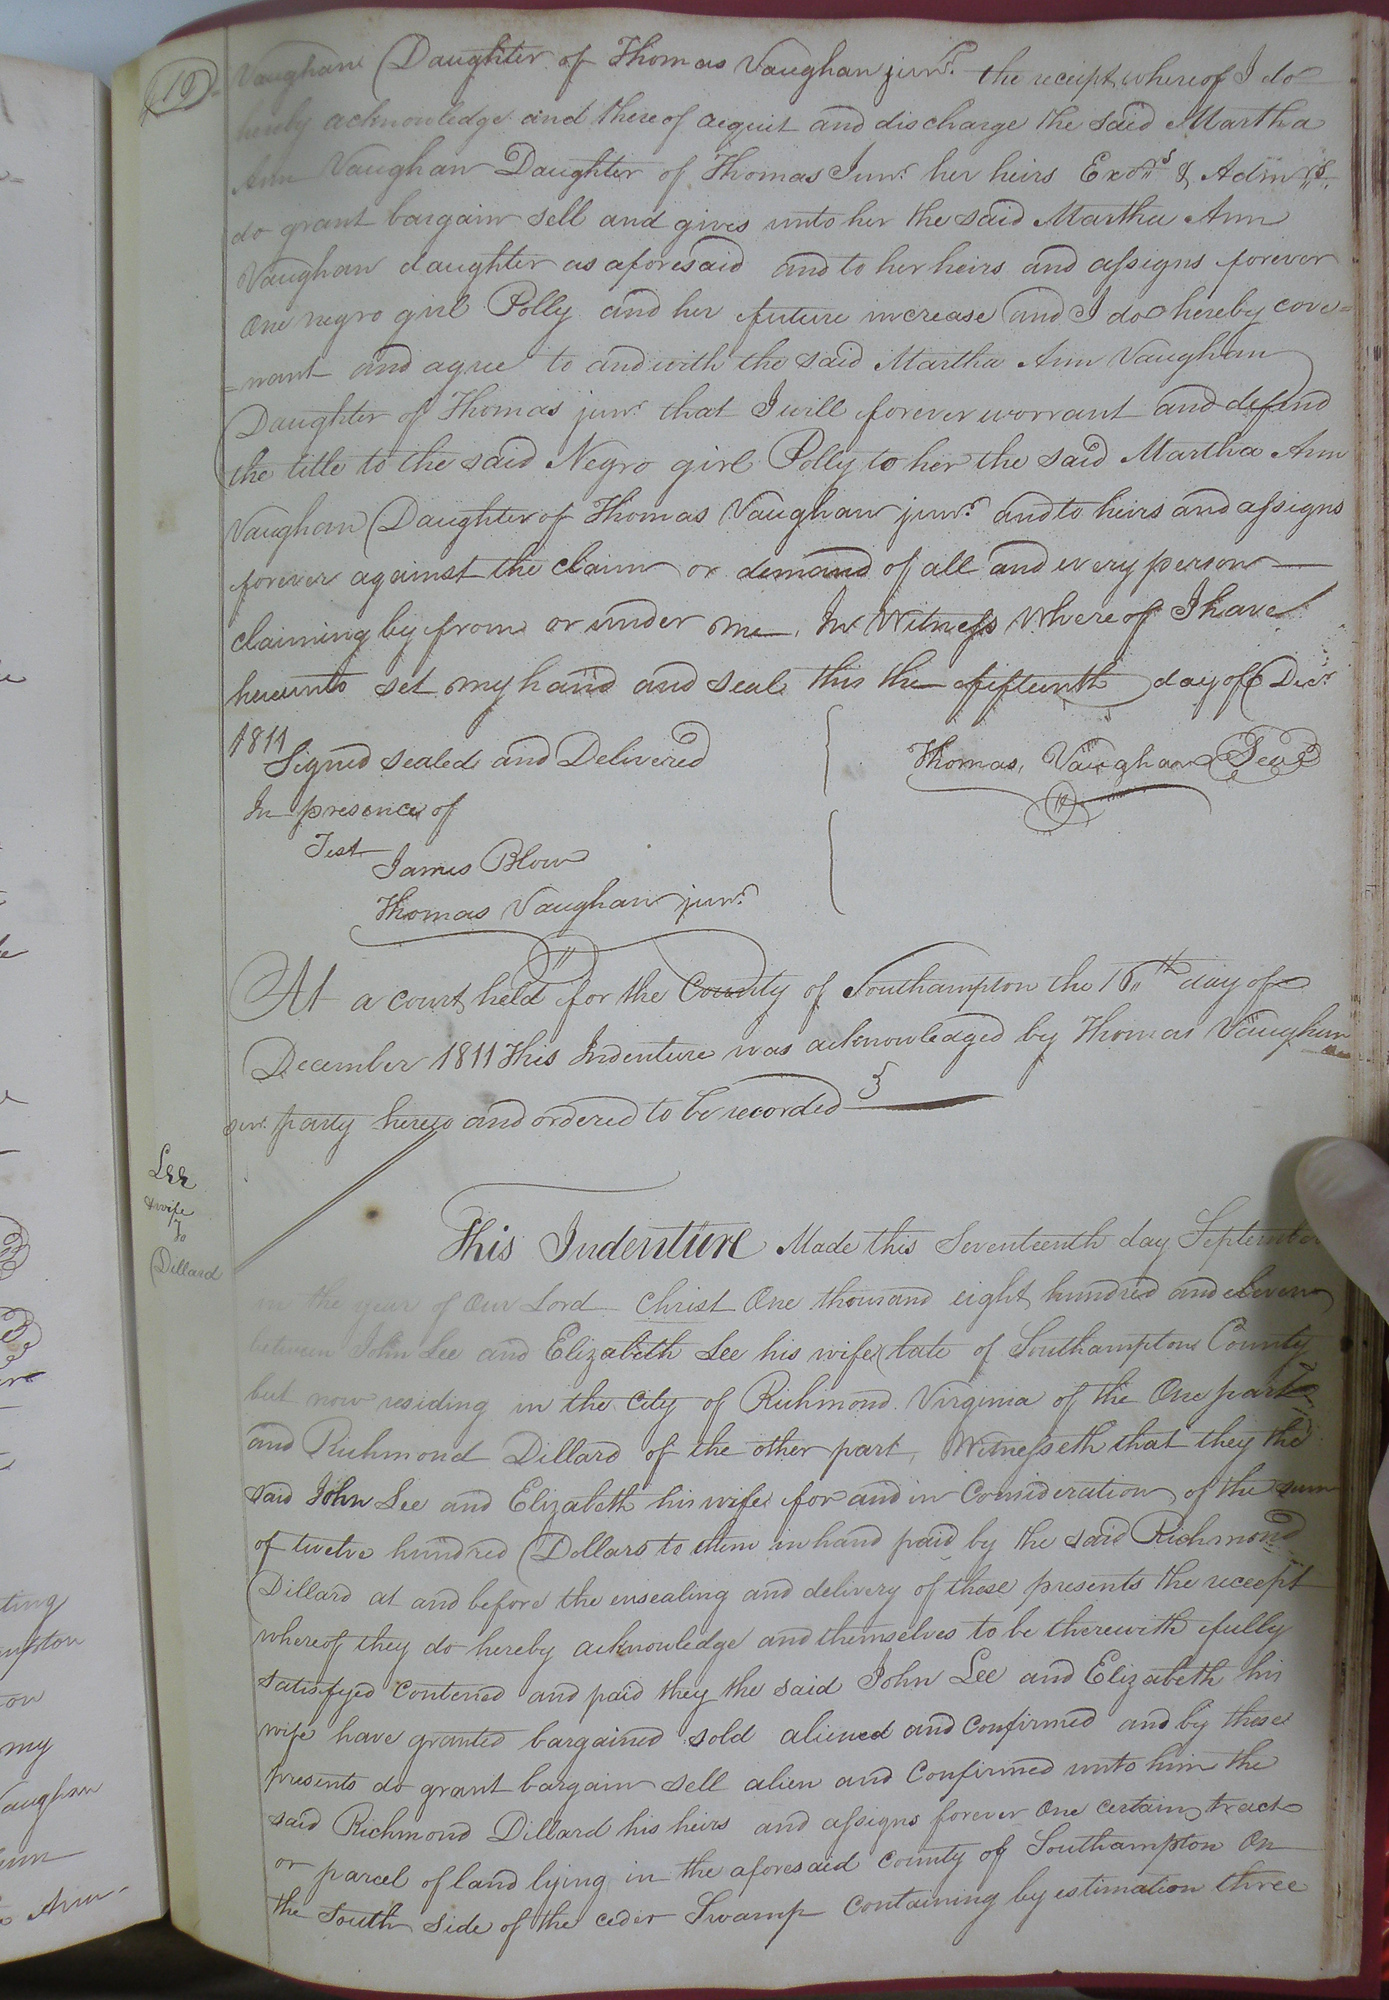 10
Vaughan Daughter of Thomas Vaughan junr. the receipt whereof I do
hereby acknowledge and thereof acquit and discharge the said Martha
Ann Vaughan Daughter of Thomas Junr. her heirs Exors & Admrs.
do grant bargain sell and gives unto her the said Martha Ann
Vaughan daughter as aforesaid and to her heirs and assigns forever
One negro girl Polly and her future increase and I do hereby cove=
=nant and agree to and with the said Martha Ann Vaughan
Daughter of Thomas junr. that I will forever worrant and defend
the title to the said Negro girl Polly to her the said Martha Ann
Vaughan Daughter of Thomas Vaughan junr. and to heirs and assigns
forever against the claim or demand of all and every person
claiming by from or under me. In Witness Whereof I have
hereunto set my hand and seal this the fifteenth day of Decr
1811
Signed sealed and Delivered
In presence of
Test
James Blow
Thomas Vaughan junr.
Thomas Vaughan Seal
At a court held for the County of Southampton the 16th day of
December 1811 This Indenture was acknowledged by Thomas Vaughan
senr. party hereto and ordered to be recorded
Lee
& wife
To
Dillard
This Indenture Made this Seventeenth day September
in the year of Our Lord Christ One thousand eight hundred and eleven
between John Lee and Elizabeth Lee his wife late of Southampton County
but now residing in the City of Richmond Virginia of the One part
and Richmond Dillard of the other part, Witnesseth that they the
said John Lee and Elizabeth his wife for and in Consideration of the sum
of twelve hundred Dollars to them in hand paid by the said Richmond
Dillard at and before the ensealing and delivery of these presents the receipt
whereof they do hereby acknowledge and themselves to be therewith fully
satisfyed Contened and paid they the said John Lee and Elizabeth his
wife have granted bargained sold aliened and Confirmed and by these
presents do grant bargain sell alien and Confirmed unto him the
said Richmond Dillard his heirs and assigns forever One certain tract
or parcel of land lying in the aforesaid County of Southampton On
the South side of the ceder Swamp Containing by estimation three